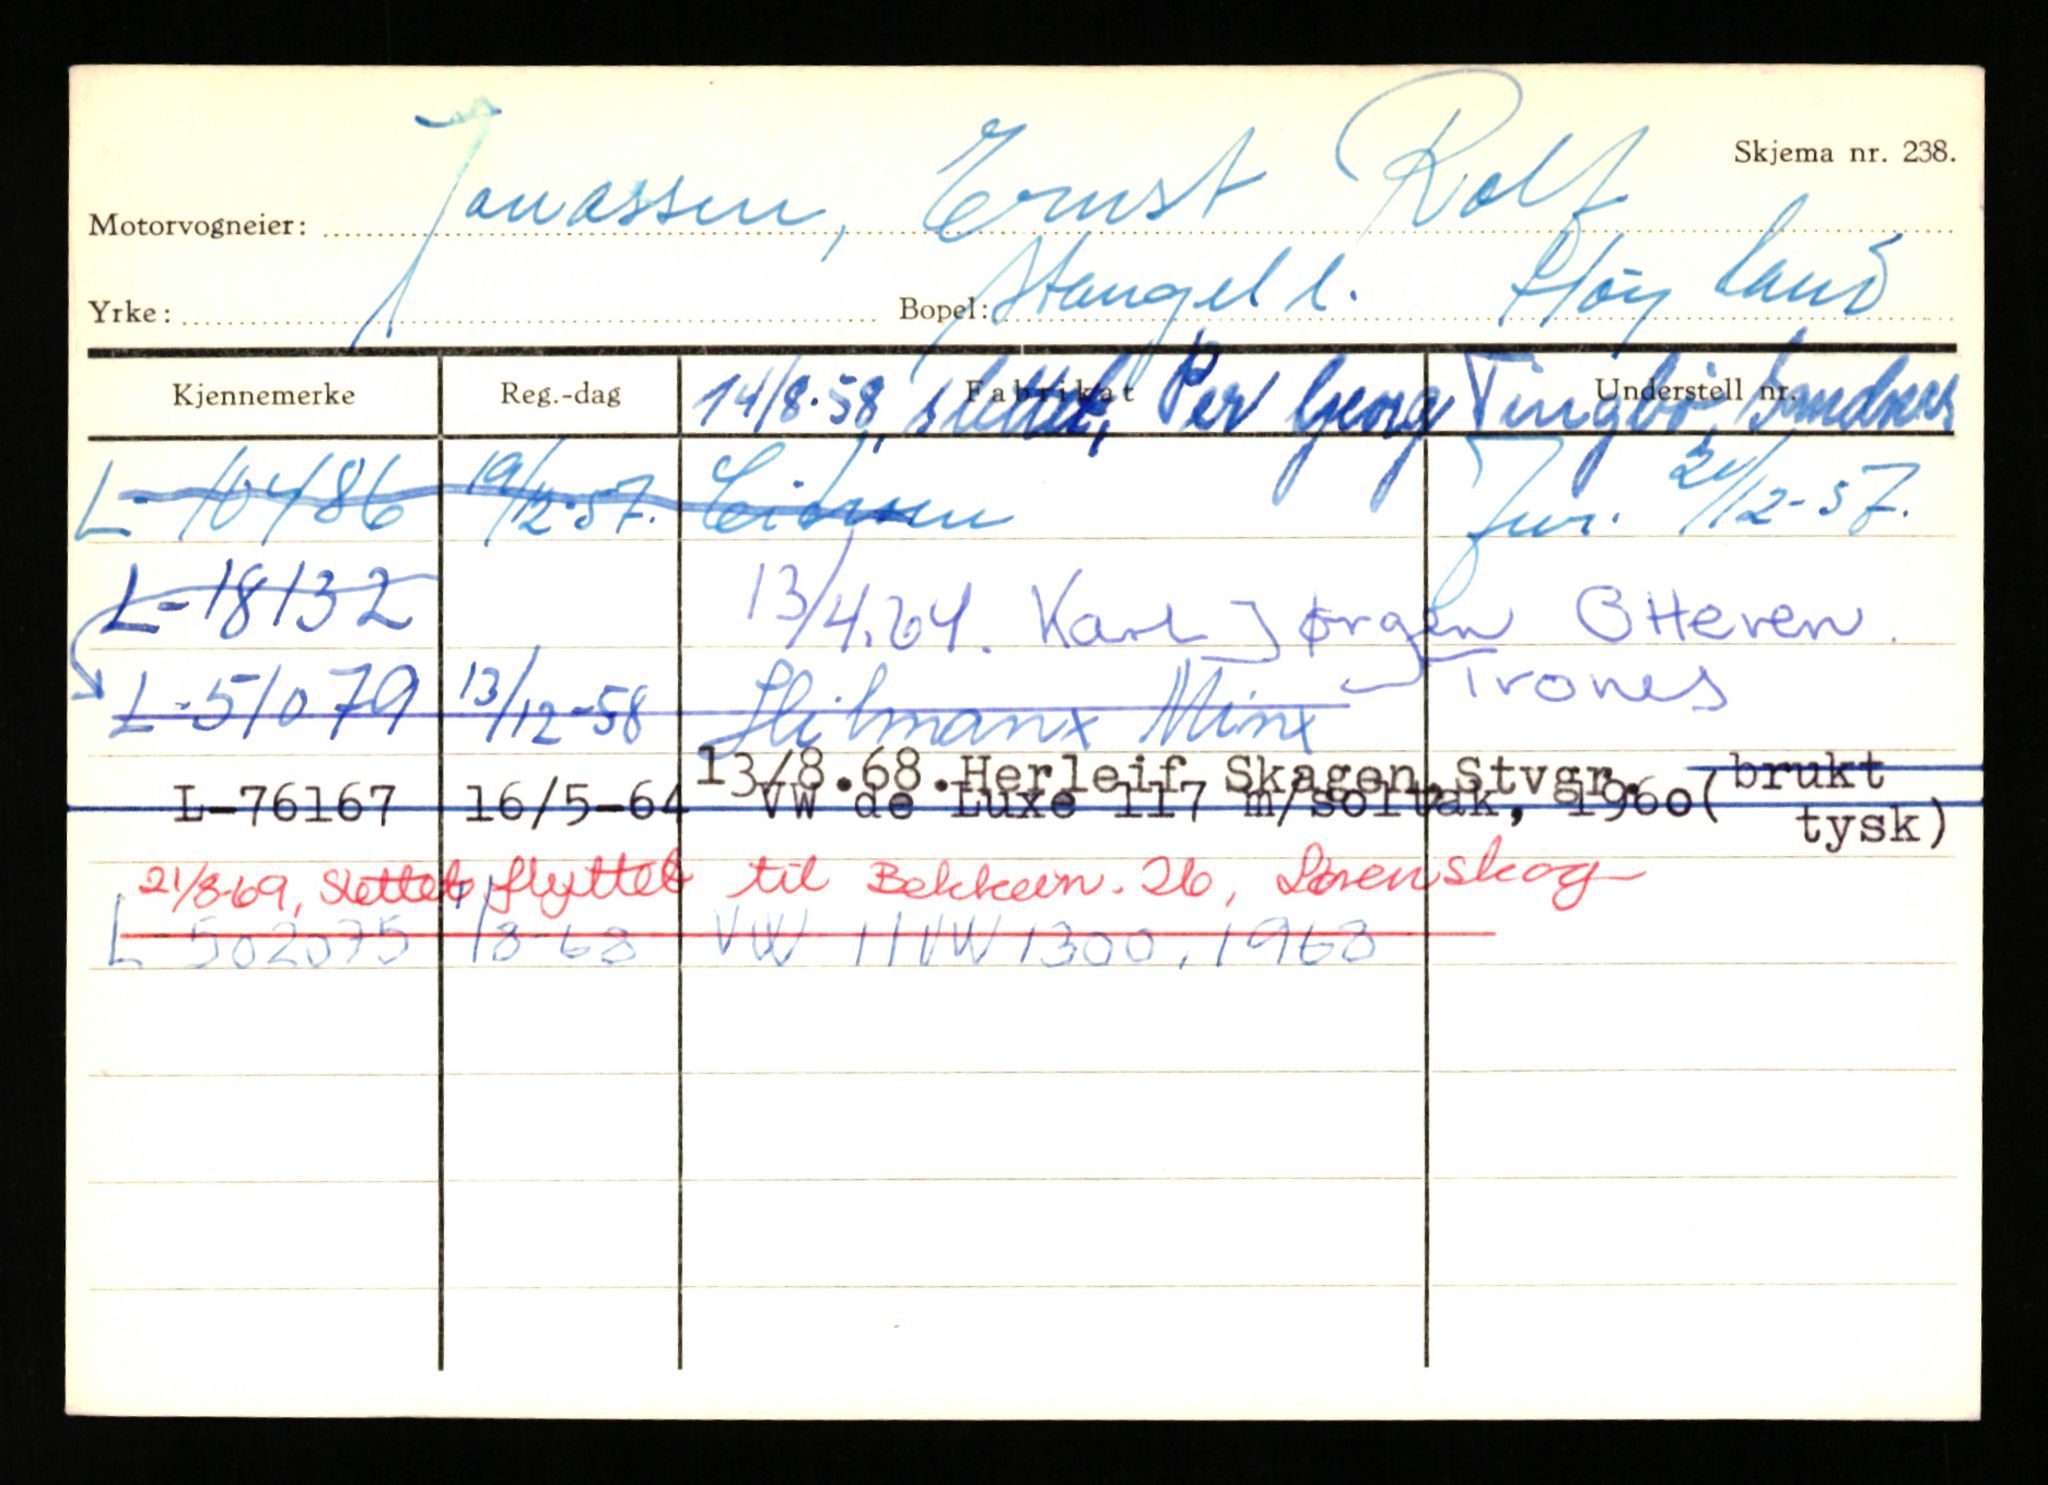 Skjema nr. 238.
Motorvogneier: Jonassen, Ernst Rolf
Yrke: Bopel: Stangel l. Høyland
Kjennemerke Reg.-dag Fabrikat Understell nr.
14/8.58, slettet, Per Georg Tingbø, Sandnes
L-10486 19/12-57. Citroen Fur. 21/12-57.
L-18132 13/4.64. Karl Jørgen Otteren.
Trones
L-51079 13/12-58 Hilmanx Minx
13/8.68. Herleif Skagen, Stvgr.
L-76167 16/5-64 VW de Luxe 117 m/soltak, 1960( brukt
tysk)
21/8-69, Slettet flyttet til Bekkevn. 26, Lørenskog
L-502075 1/8-68 VW 11 VW 1300, 1968